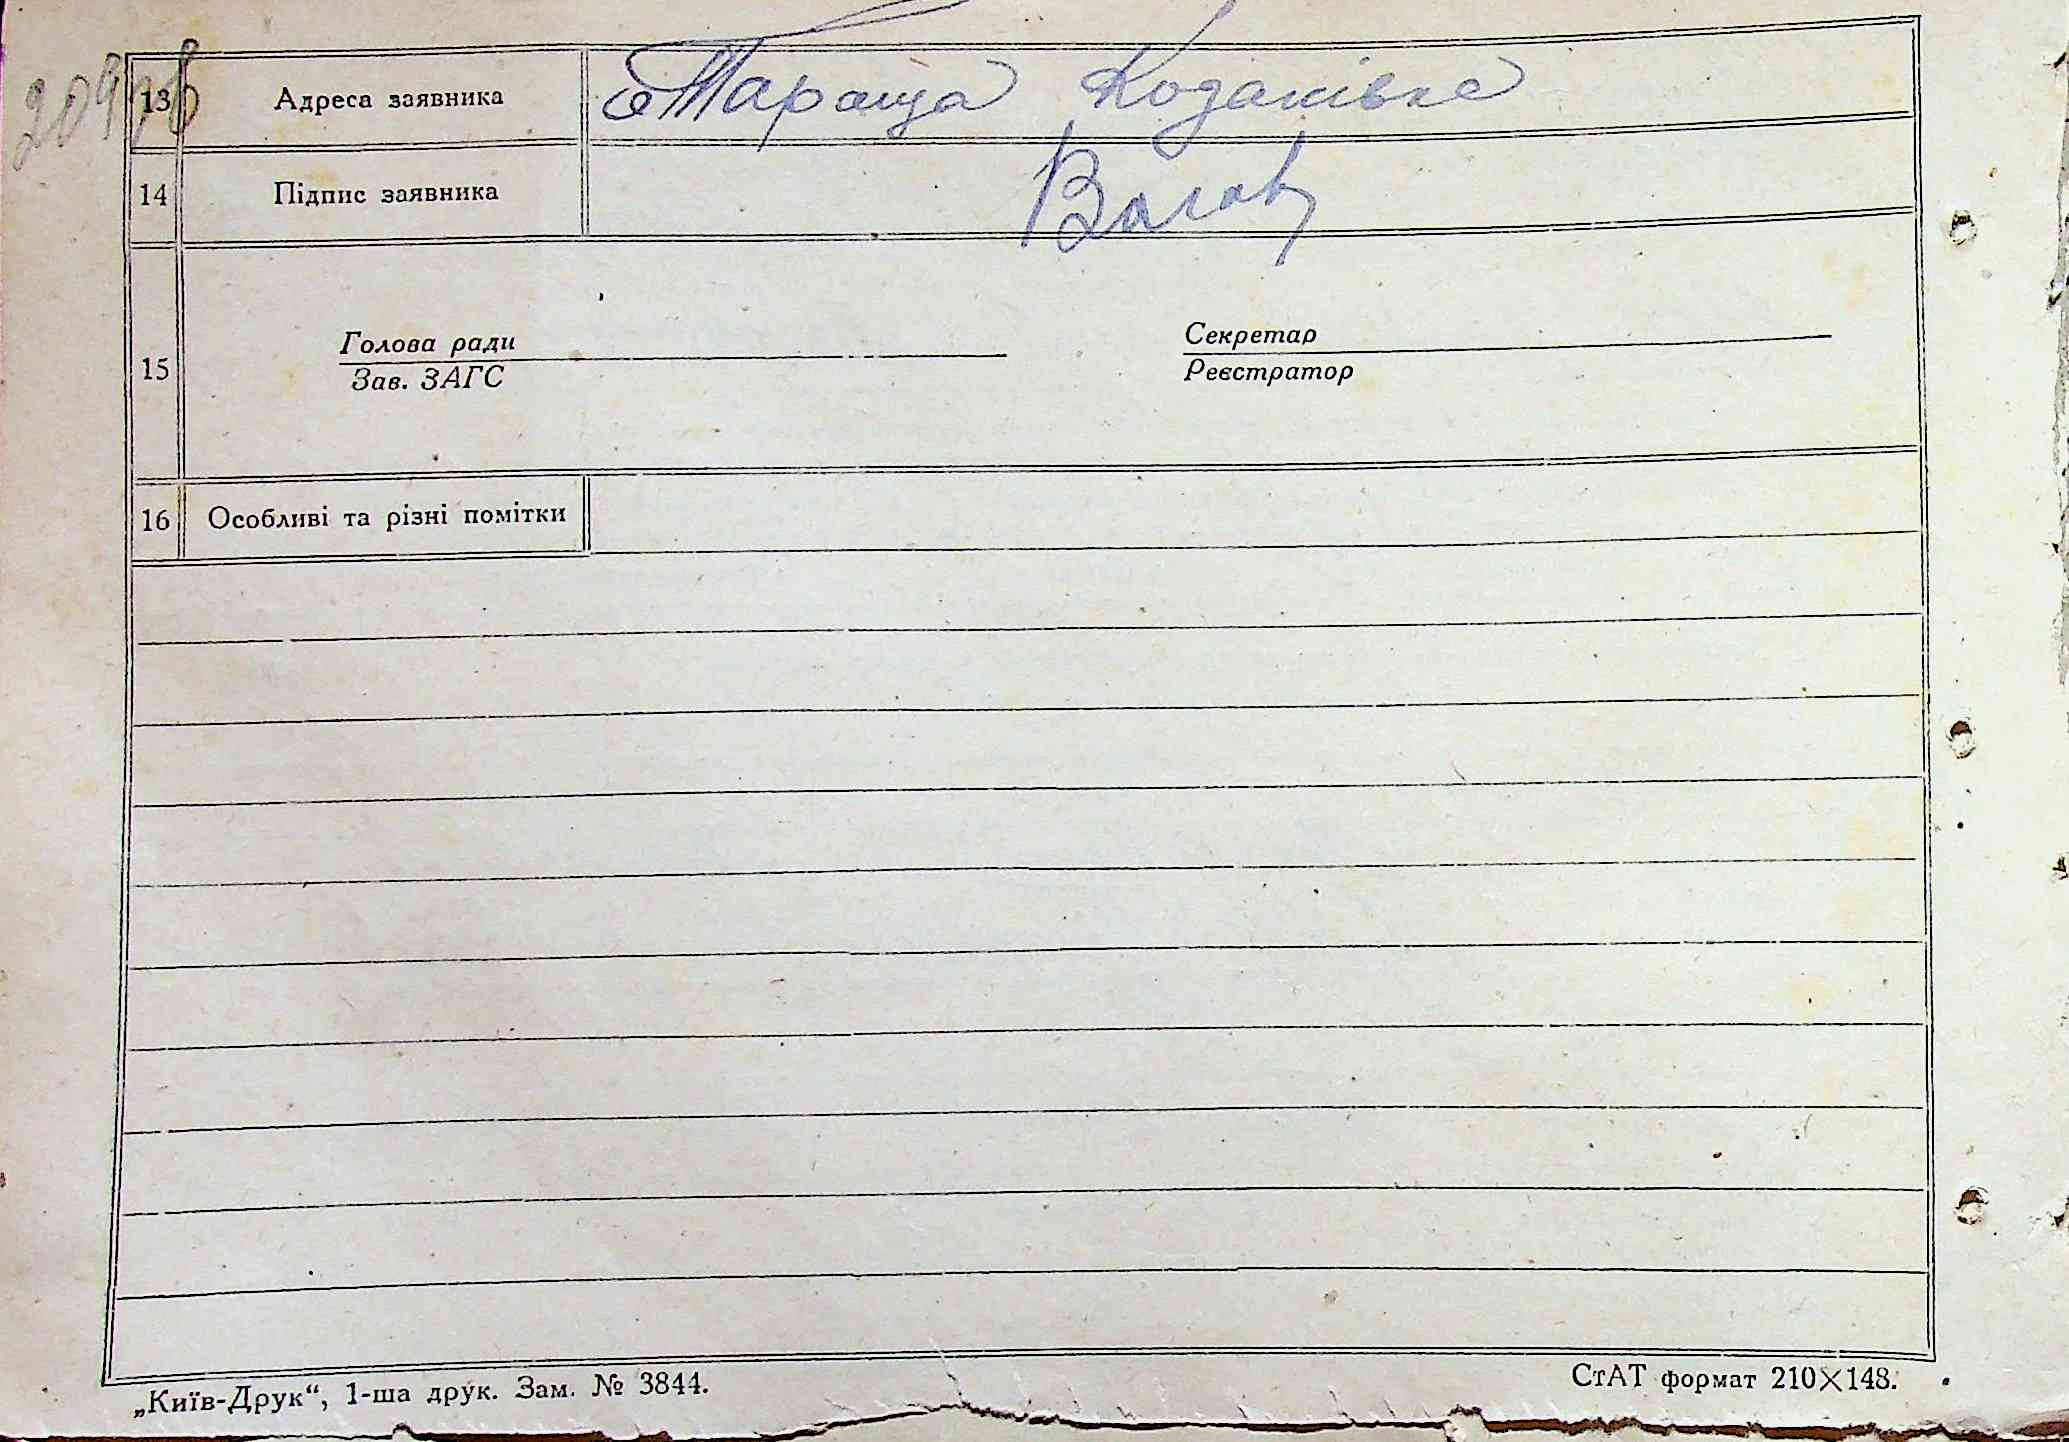 13 Адреса заявника Тараща Кодаківка
14 Підпис заявника
15 Голова ради Секретар
Зав. ЗАГС Реєстратор
16 Особливі та різні помітки
„Київ-Друк“, 1-ша друк. Зам. № 3844. СтАТ формат 210×148.